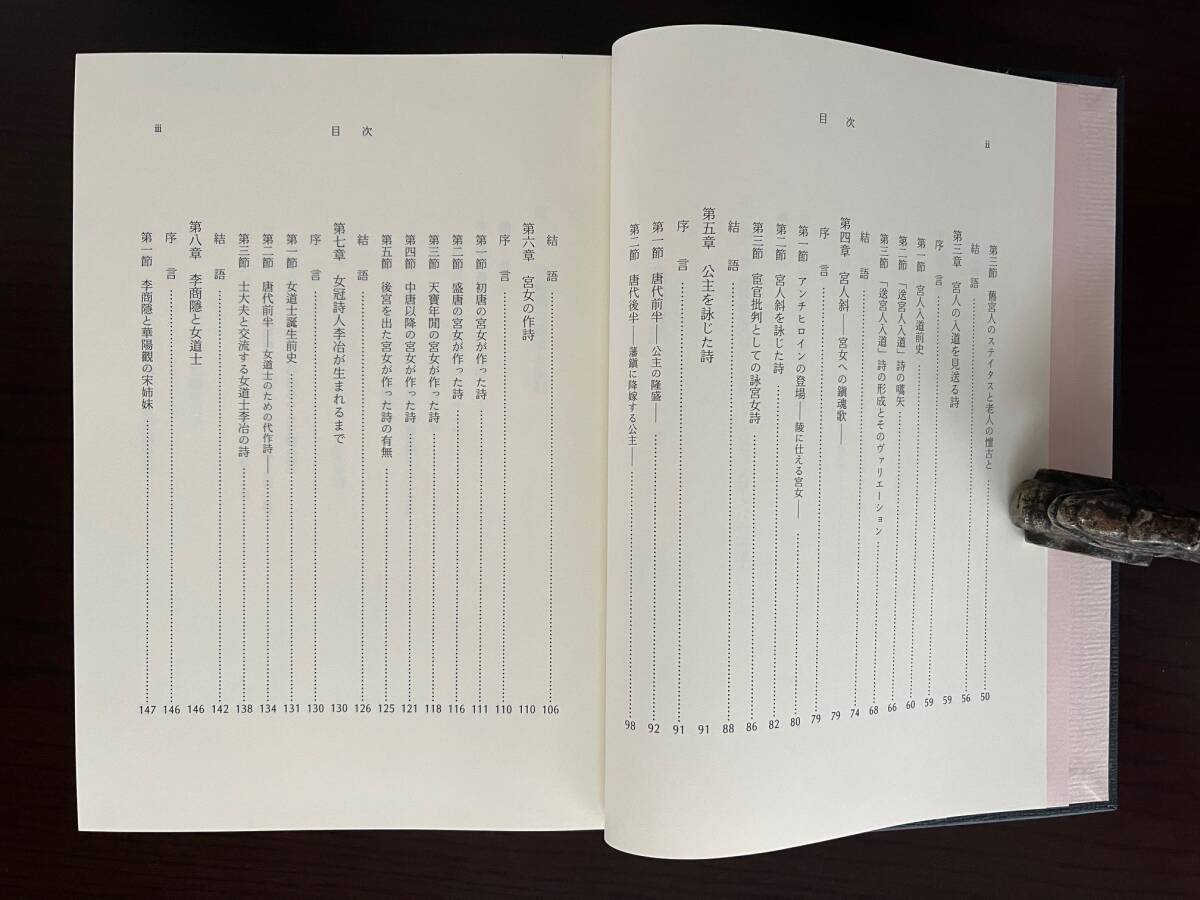 目次
ii
第三節 舊宮人のステイタスと老人の懷古と 50
結語 56
第三章 宮人の入道を見送る詩 59
序言 59
第一節 宮人入道前史 60
第二節 「送宮人入道」詩の嚆矢 66
第三節 「送宮人入道」詩の形成とそのヴァリエーション 68
結語 74
第四章 宮人斜――宮女への鎭魂歌―― 79
序言 79
第一節 アンチヒロインの登場――陵に仕える宮女―― 80
第二節 宮人斜を詠じた詩 82
第三節 宦官批判としての詠宮女詩 86
結語 88
第五章 公主を詠じた詩 91
序言 91
第一節 唐代前半――公主の隆盛―― 92
第二節 唐代後半――藩鎭に降嫁する公主―― 98
目次
iii
結語 106
第六章 宮女の作詩 110
序言 110
第一節 初唐の宮女が作った詩 111
第二節 盛唐の宮女が作った詩 116
第三節 天寶年閒の宮女が作った詩 118
第四節 中唐以降の宮女が作った詩 121
第五節 後宮を出た宮女が作った詩の有無 125
結語 126
第七章 女冠詩人李冶が生まれるまで 130
序言 130
第一節 女道士誕生前史 131
第二節 唐代前半――女道士のための代作詩―― 134
第三節 士大夫と交流する女道士李冶の詩 138
結語 142
第八章 李商隱と女道士 146
序言 146
第一節 李商隱と華陽觀の宋姉妹 147